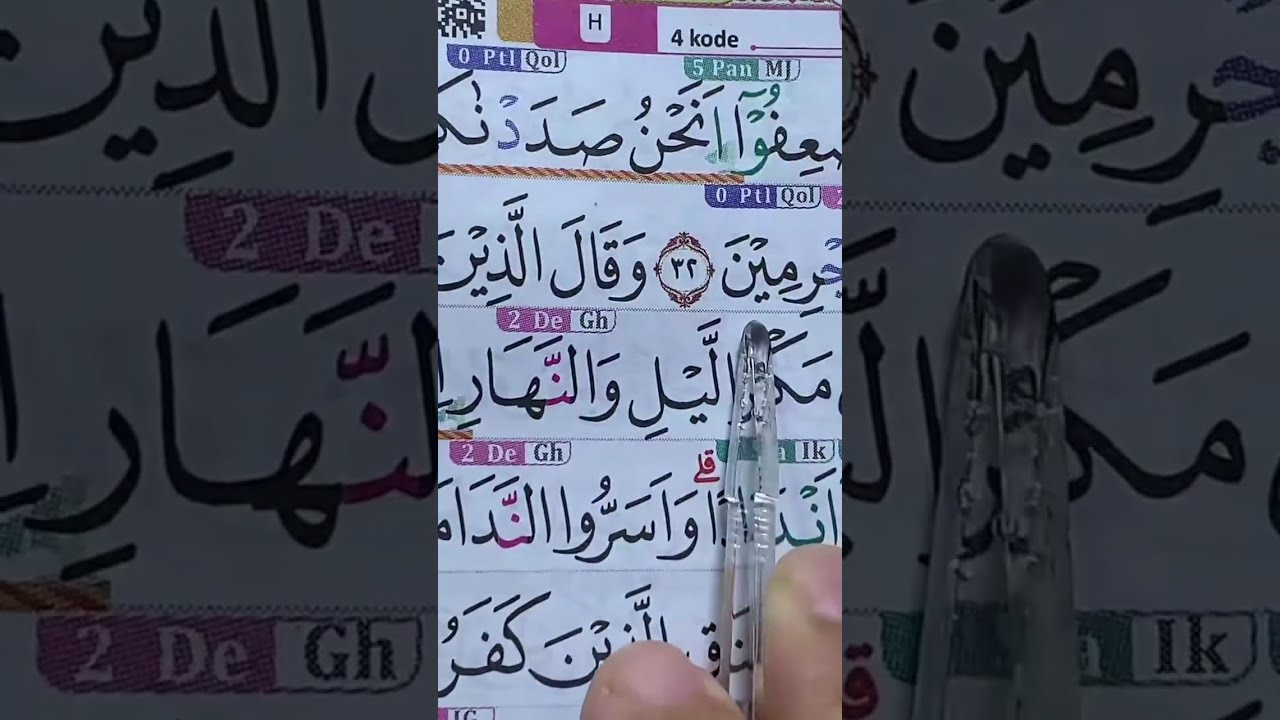 H 4 kode
0 Ptl Qol 5 Pan MJ
اَنَحْنُ صَدَدْنٰك
0 Ptl Qol
جْرِمِيْنَ ٣٢ وَقَالَ الَّذِيْنَ
2 De Gh
مَكْرُ الَّيْلِ وَالنَّهَارِ
2 De Gh Ik
اَنْدَادًا ۗ وَاَسَرُّوا النَّدَامَ
الَّذِيْنَ كَفَرُ